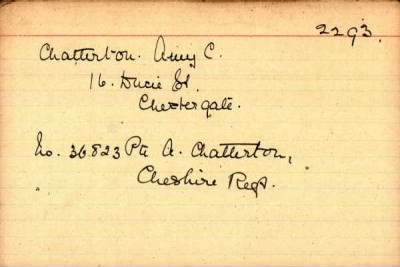 2293.
Chatterton. Amy C.
16. Ducie St.
Chestergate.
No. 36823 Pte A. Chatterton,
Cheshire Regt.